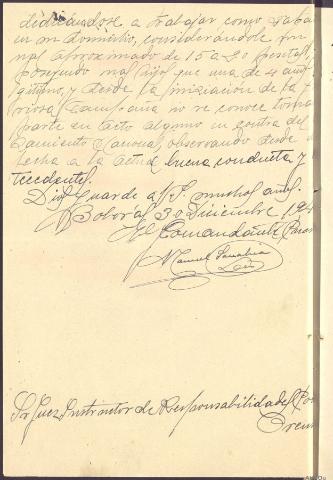 dedicandose a trabajar como
en su domicilio, considerandole un
nal aproximado de 15 a 20 pesetas
poseyendo mas hijos que una de 4 años
y desde la iniciación de la
riosa Campaña no se conoce tomara
parte en acto alguno en contra del
Nacional, observando desde
fecha a la actual buena conducta y
tecedentes.
Dios Guarde a V.S. muchos años.
Boborás 30 Diciembre 194
El Comandante
Manuel
Sr Juez Instructor de Responsabilidades Po
Oren